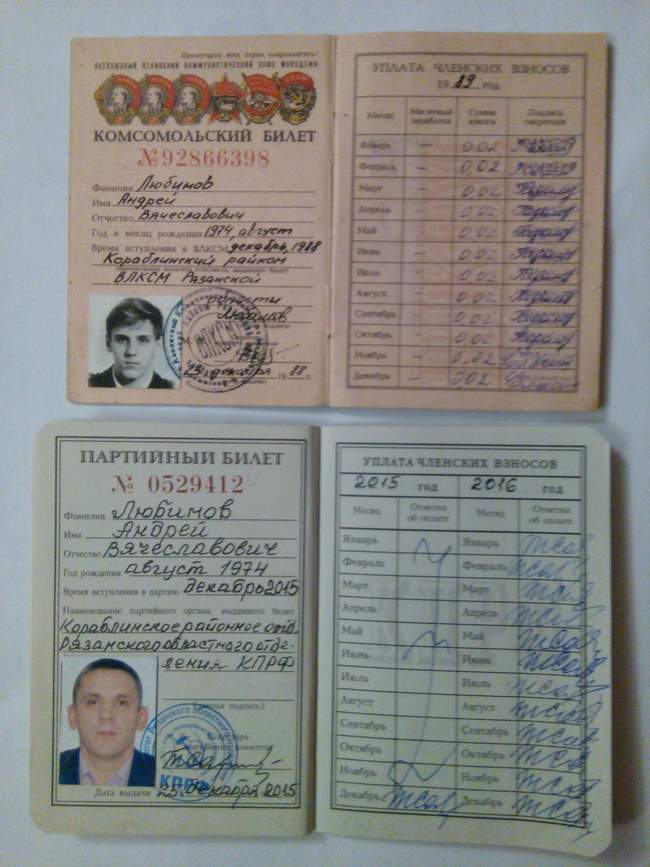 Пролетарии всех стран, соединяйтесь!
ВСЕСОЮЗНЫЙ ЛЕНИНСКИЙ КОММУНИСТИЧЕСКИЙ СОЮЗ МОЛОДЕЖИ
КОМСОМОЛЬСКИЙ БИЛЕТ
№92866398
Фамилия Любимов
Имя Андрей
Отчество Вячеславович
Год и месяц рождения 1974, август
Время вступления в ВЛКСМ декабрь, 1988
Кораблинский райком
ВЛКСМ Рязанской
области
Любимов
ВЛКСМ
23 декабря 1988 г.
УПЛАТА ЧЛЕНСКИХ ВЗНОСОВ
1989 год
Месяц Месячный заработок Сумма взноса Подпись секретаря
Январь — 0,02
Февраль — 0,02
Март — 0,02
Апрель — 0,02
Май — 0,02
Июнь — 0,02
Июль — 0,02
Август — 0,02
Сентябрь — 0,02
Октябрь — 0,02
Ноябрь — 0,02
Декабрь — 0,02
ПАРТИЙНЫЙ БИЛЕТ
№ 0529412
Фамилия Любимов
Имя Андрей
Отчество Вячеславович
Год рождения август 1974
Время вступления в партию декабрь 2015
Наименование партийного органа, выдавшего билет
Кораблинское районное отд.
Рязанского областного отде-
ления КПРФ
(личная подпись)
Секретарь
комитета
КПРФ
Дата выдачи 25 декабря 2015
УПЛАТА ЧЛЕНСКИХ ВЗНОСОВ
2015 год 2016 год
Месяц Отметка об оплате Месяц Отметка об оплате
Январь Январь
Февраль Февраль
Март Март
Апрель Апрель
Май Май
Июнь Июнь
Июль Июль
Август Август
Сентябрь Сентябрь
Октябрь Октябрь
Ноябрь Ноябрь
Декабрь Декабрь